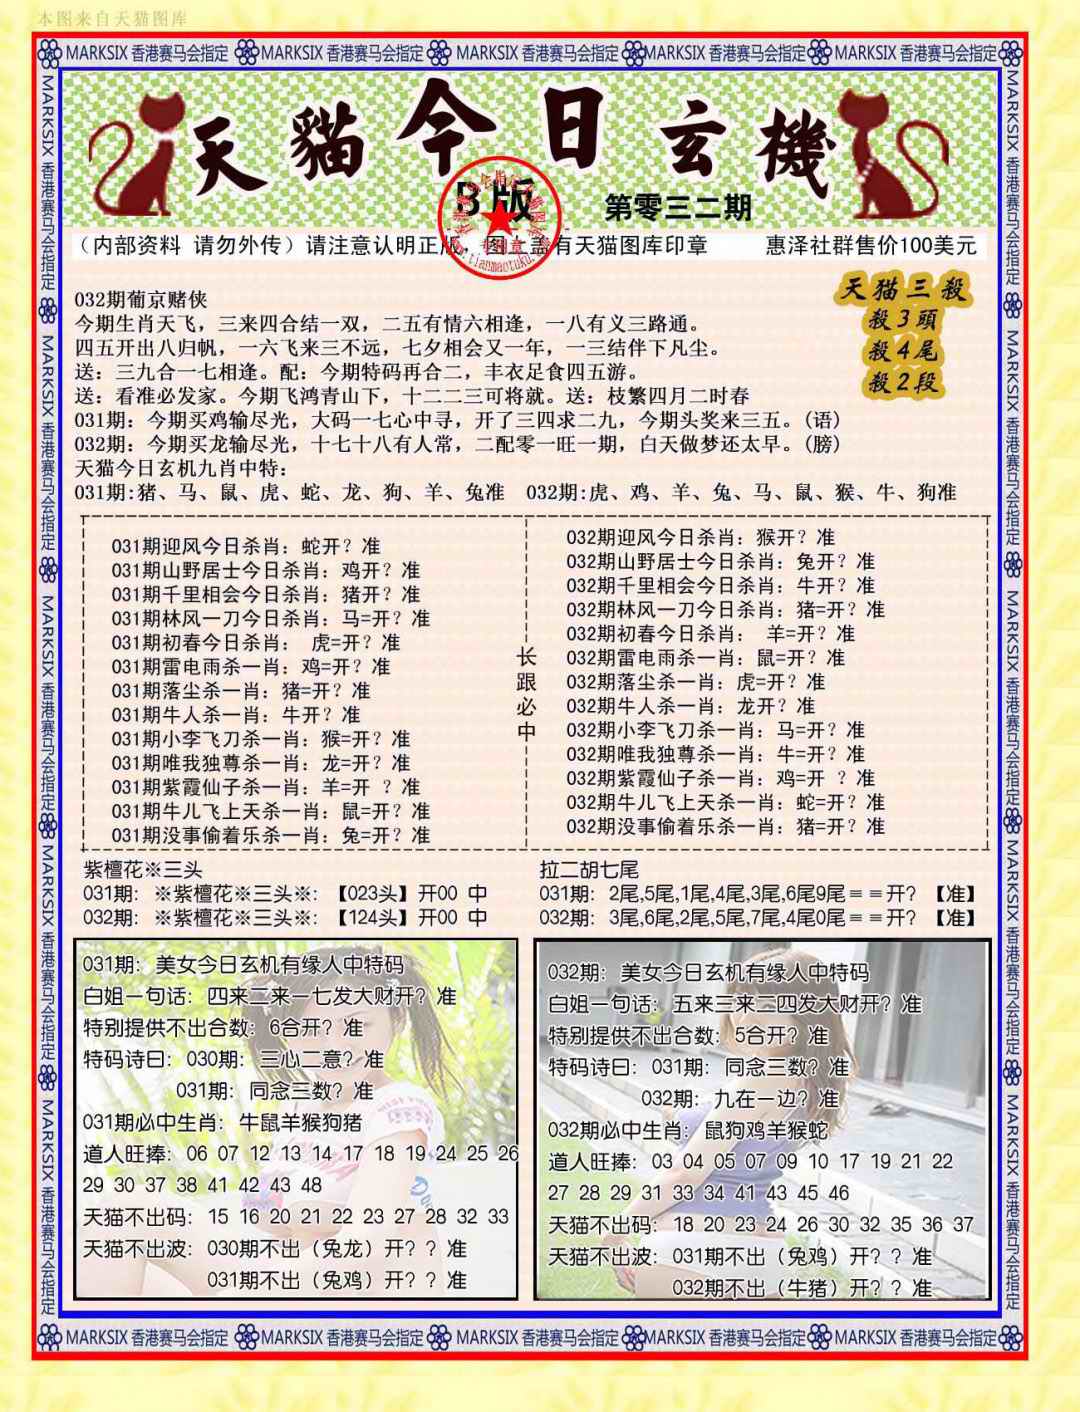 本图来自天猫图库
MARKSIX 香港赛马会指定 MARKSIX 香港赛马会指定 MARKSIX 香港赛马会指定 MARKSIX 香港赛马会指定 MARKSIX 香港赛马会指定
天貓今日玄機
B版
第零三二期
（内部资料 请勿外传）请注意认明正版，图上盖有天猫图库印章 惠泽社群售价100美元
天猫三殺
殺3頭
殺4尾
殺2段
032期葡京赌侠
今期生肖天飞，三来四合结一双，二五有情六相逢，一八有义三路通。
四五开出八归帆，一六飞来三不远，七夕相会又一年，一三结伴下凡尘。
送：三九合一七相逢。配：今期特码再合二，丰衣足食四五游。
送：看准必发家。今期飞鸿青山下，十二二三可将就。送：枝繁四月二时春
031期：今期买鸡输尽光，大码一七心中寻，开了三四求二九，今期头奖来三五。(语)
032期：今期买龙输尽光，十七十八有人常，二配零一旺一期，白天做梦还太早。(膀)
天猫今日玄机九肖中特：
031期:猪、马、鼠、虎、蛇、龙、狗、羊、兔准 032期:虎、鸡、羊、兔、马、鼠、猴、牛、狗准
031期迎风今日杀肖：蛇开？准
031期山野居士今日杀肖：鸡开？准
031期千里相会今日杀肖：猪开？准
031期林风一刀今日杀肖：马=开？准
031期初春今日杀肖： 虎=开？准
031期雷电雨杀一肖：鸡=开？准
031期落尘杀一肖：猪=开？准
031期牛人杀一肖：牛开？准
031期小李飞刀杀一肖：猴=开？准
031期唯我独尊杀一肖：龙=开？准
031期紫霞仙子杀一肖：羊=开 ？准
031期牛儿飞上天杀一肖：鼠=开？准
031期没事偷着乐杀一肖：兔=开？准
长跟必中
032期迎风今日杀肖：猴开？准
032期山野居士今日杀肖：兔开？准
032期千里相会今日杀肖：牛开？准
032期林风一刀今日杀肖：猪=开？准
032期初春今日杀肖： 羊=开？准
032期雷电雨杀一肖：鼠=开？准
032期落尘杀一肖：虎=开？准
032期牛人杀一肖：龙开？准
032期小李飞刀杀一肖：马=开？准
032期唯我独尊杀一肖：牛=开？准
032期紫霞仙子杀一肖：鸡=开 ？准
032期牛儿飞上天杀一肖：蛇=开？准
032期没事偷着乐杀一肖：猪=开？准
紫檀花※三头
031期：※紫檀花※三头※：【023头】开00 中
032期：※紫檀花※三头※：【124头】开00 中
拉二胡七尾
031期：2尾,5尾,1尾,4尾,3尾,6尾9尾＝＝开？【准】
032期：3尾,6尾,2尾,5尾,7尾,4尾0尾＝＝开？【准】
031期：美女今日玄机有缘人中特码
白姐一句话：四来二来一七发大财开？准
特别提供不出合数：6合开？准
特码诗曰：030期：三心二意？准
031期：同念三数？准
031期必中生肖：牛鼠羊猴狗猪
道人旺捧：06 07 12 13 14 17 18 19 24 25 26
29 30 37 38 41 42 43 48
天猫不出码：15 16 20 21 22 23 27 28 32 33
天猫不出波：030期不出（兔龙）开？？准
031期不出（兔鸡）开？？准
032期：美女今日玄机有缘人中特码
白姐一句话：五来三来二四发大财开？准
特别提供不出合数：5合开？准
特码诗曰：031期：同念三数？准
032期：九在一边？准
032期必中生肖：鼠狗鸡羊猴蛇
道人旺捧：03 04 05 07 09 10 17 19 21 22
27 28 29 31 33 34 41 43 45 46
天猫不出码：18 20 23 24 26 30 32 35 36 37
天猫不出波：031期不出（兔鸡）开？？准
032期不出（牛猪）开？？准
MARKSIX 香港赛马会指定 MARKSIX 香港赛马会指定 MARKSIX 香港赛马会指定 MARKSIX 香港赛马会指定 MARKSIX 香港赛马会指定